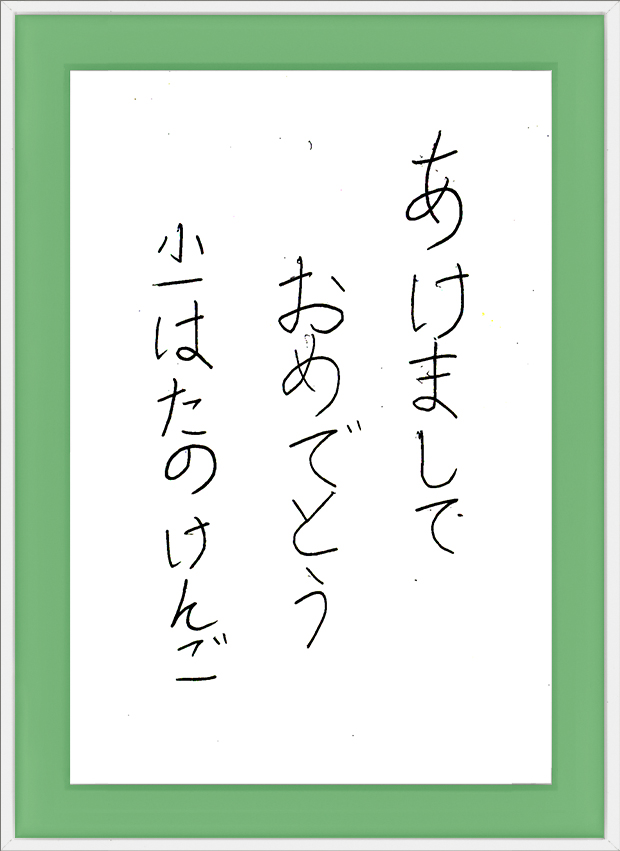 あけまして
おめでとう
小一はたのけんご